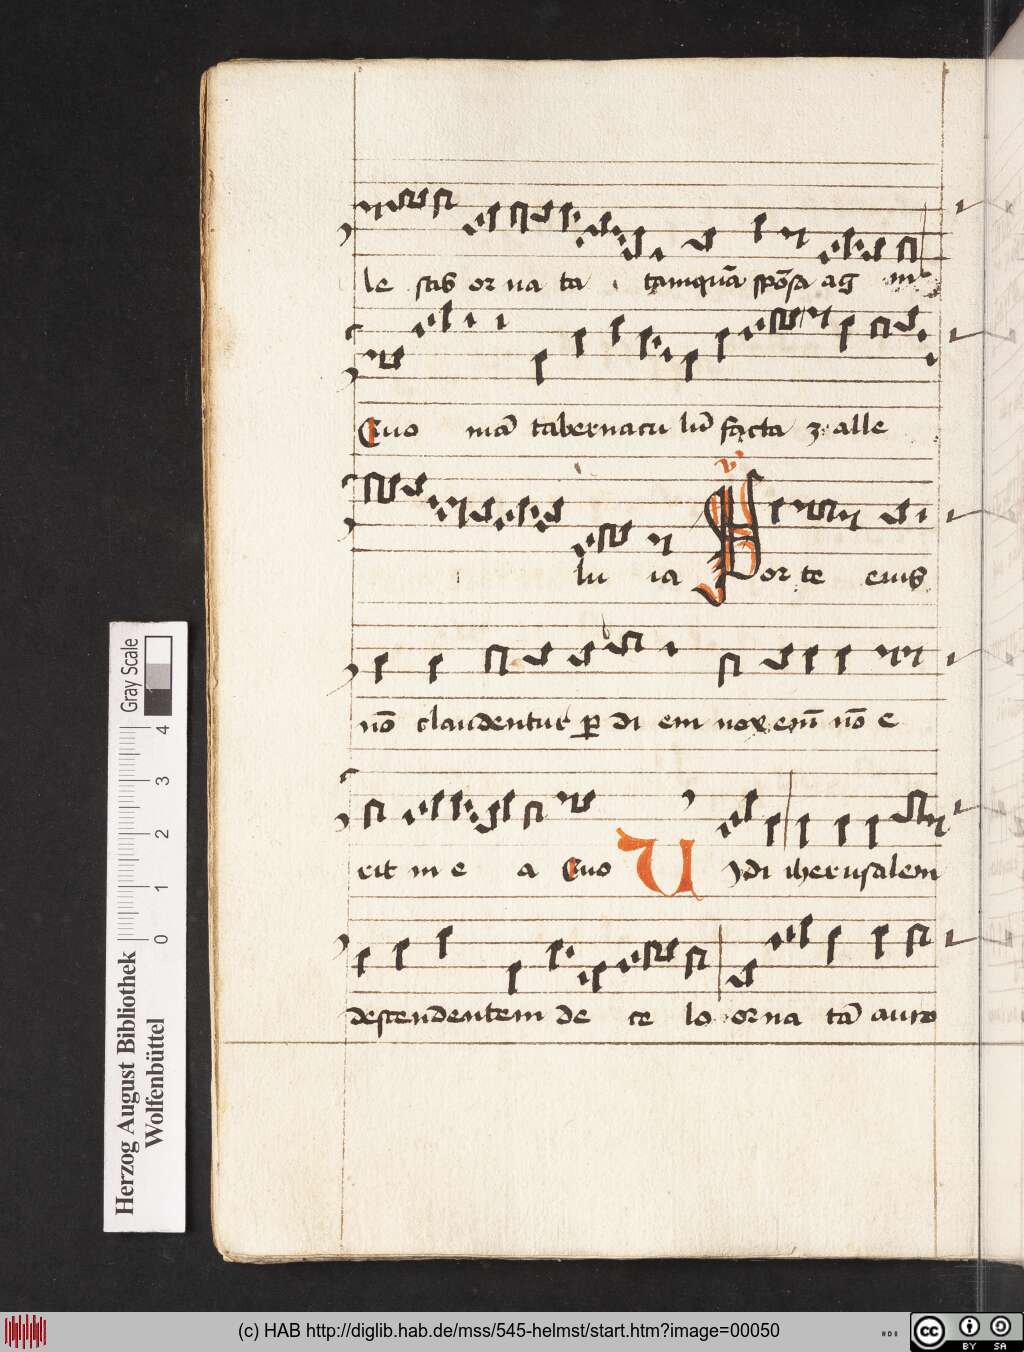 le stas or na ta . tamquā spōsa ag ni
Cuo niā tabernacu lū facta ʒ alle
lu ia
v
Por te eius
nō claudentur ꝑ di em nox em̄ nō e
rit in e a Cuo U idi iherusalem
descendentem de ce lo or na tā auro
Gray Scale
4
3
2
1
0
Herzog August Bibliothek
Wolfenbüttel
(c) HAB http://diglib.hab.de/mss/545-helmst/start.htm?image=00050
cc BY SA